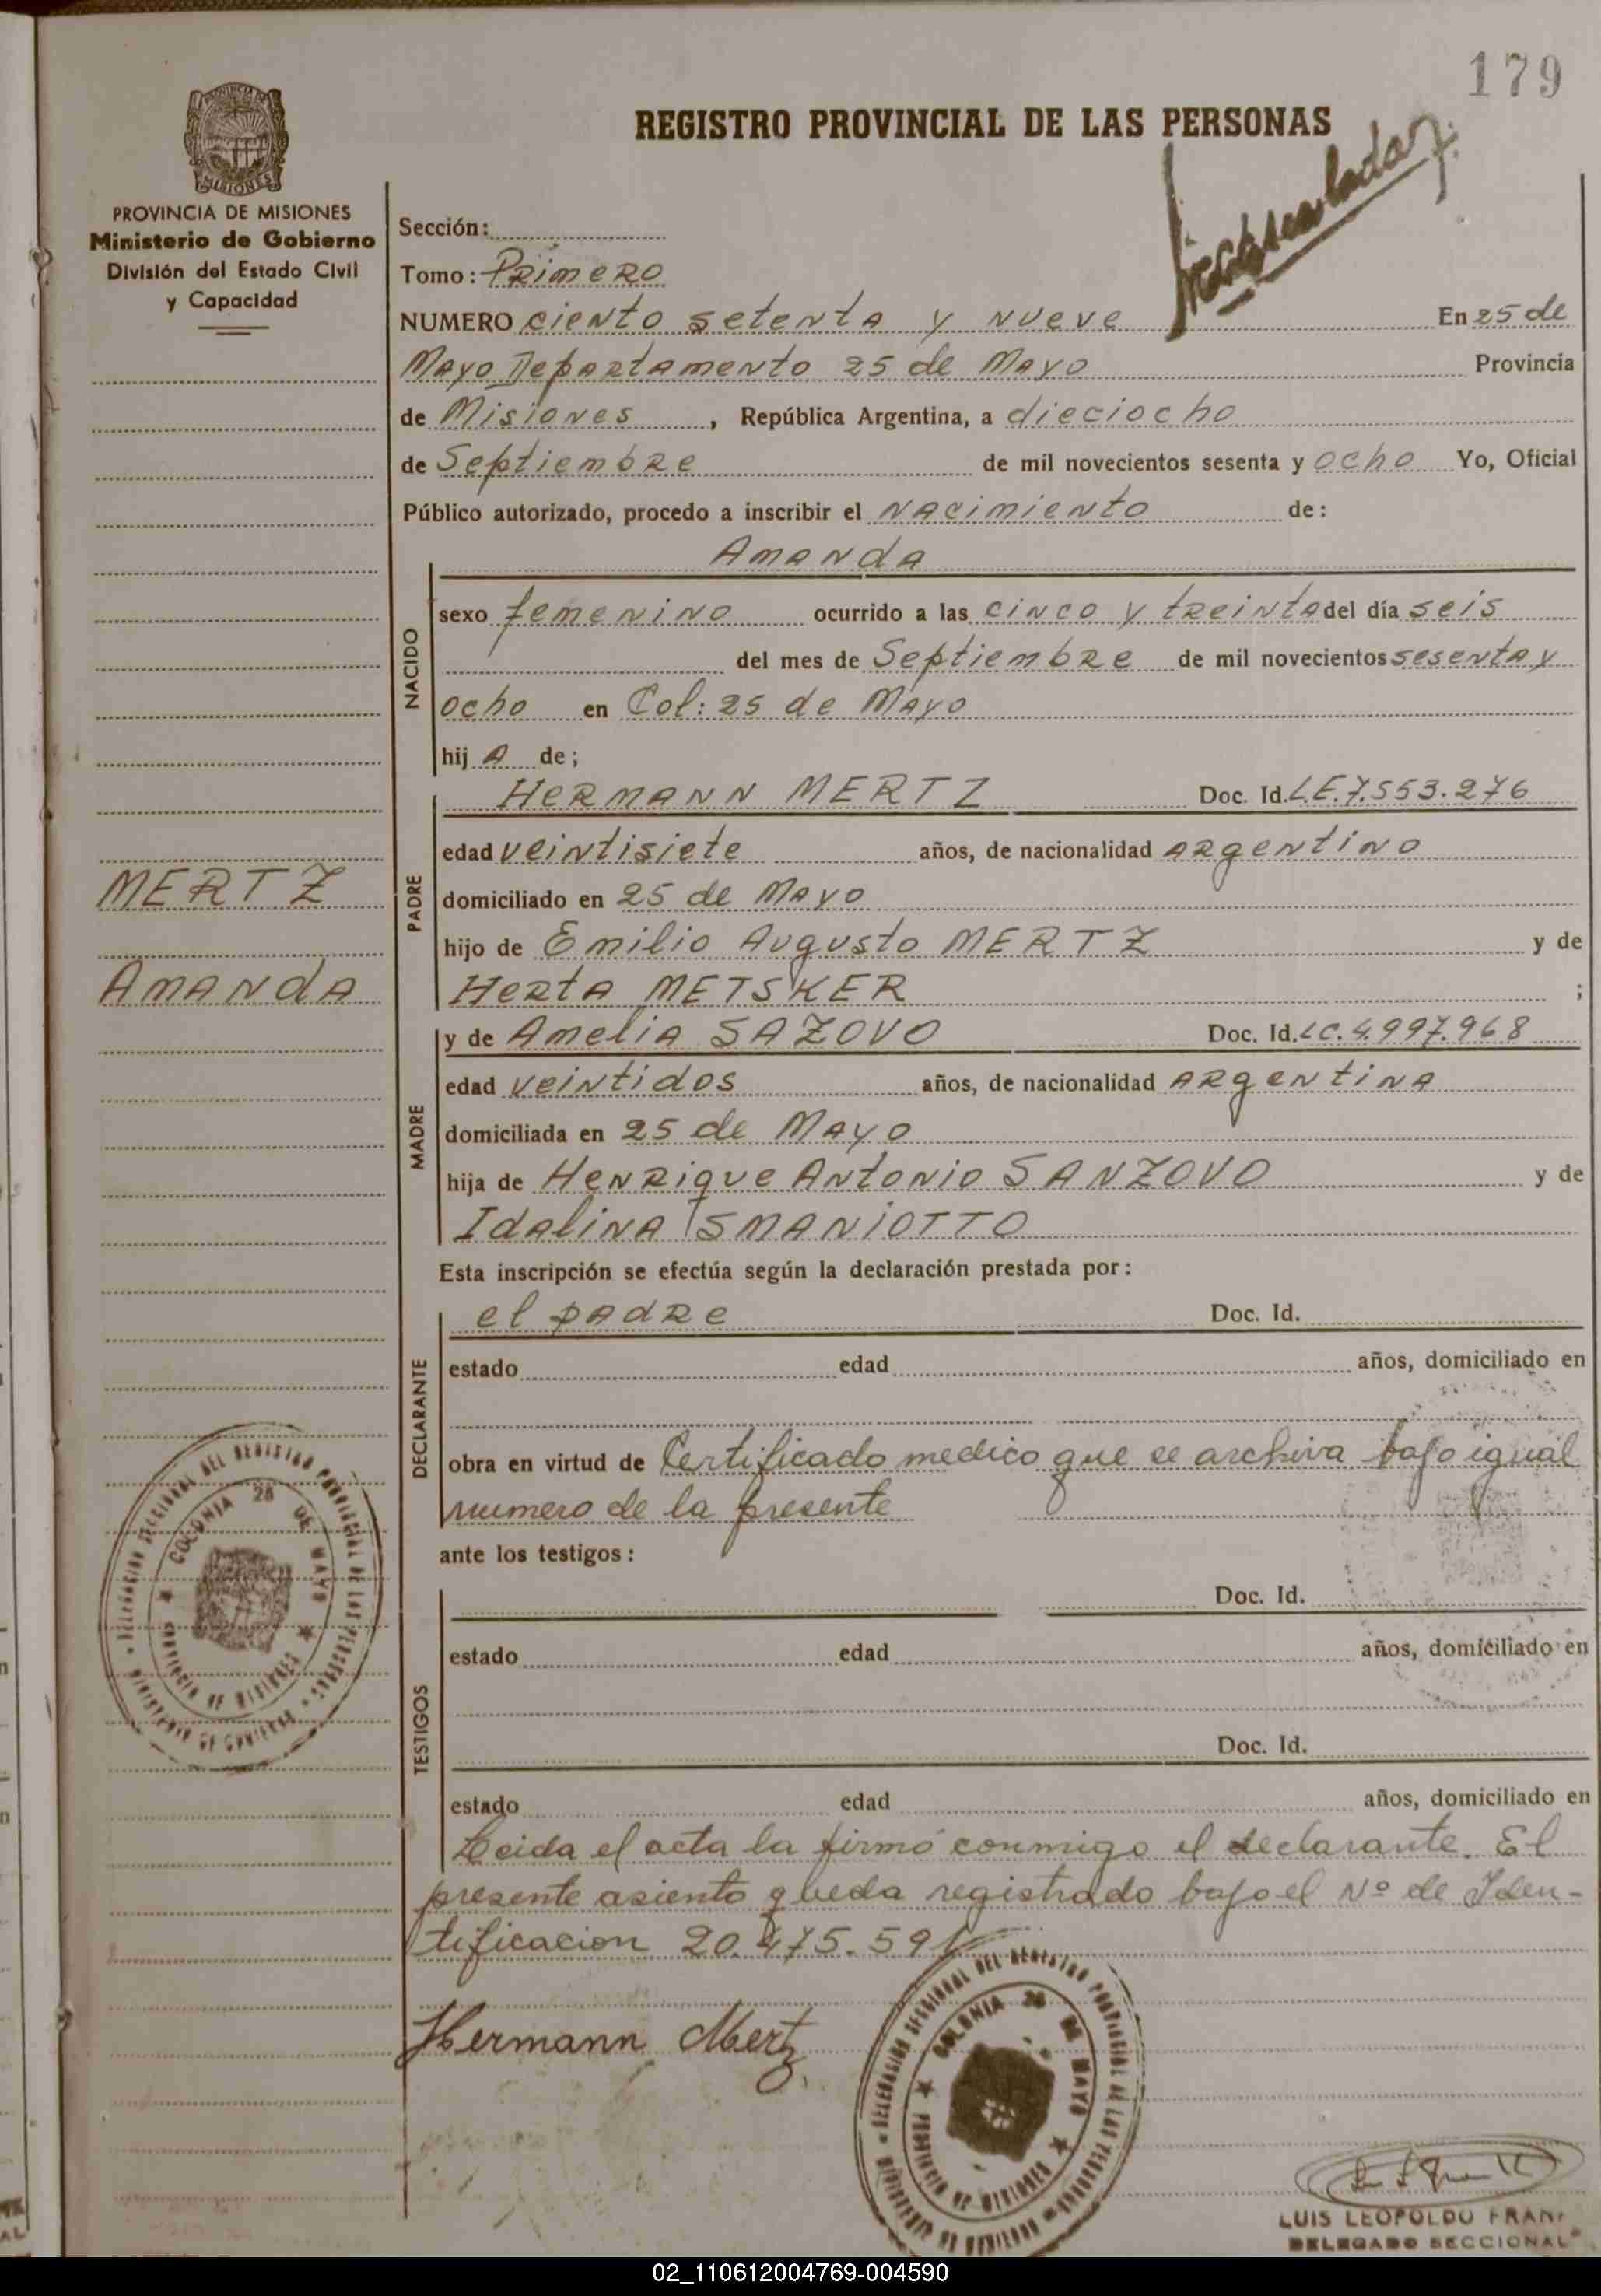 179
REGISTRO PROVINCIAL DE LAS PERSONAS
PROVINCIA DE MISIONES
Ministerio de Gobierno
División del Estado Civil
y Capacidad
Sección:
Tomo: Primero
NUMERO ciento setenta y nueve En 25 de
Mayo Departamento 25 de Mayo Provincia
de Misiones, República Argentina, a dieciocho
de Septiembre de mil novecientos sesenta y ocho Yo, Oficial
Público autorizado, procedo a inscribir el nacimiento de:
Amanda
NACIDO
sexo femenino ocurrido a las cinco y treinta del día seis
del mes de Septiembre de mil novecientos sesenta y
ocho en Col: 25 de Mayo
hija de;
HERMANN MERTZ Doc. Id. L.E. 7.553.276
PADRE
edad veintisiete años, de nacionalidad argentino
domiciliado en 25 de Mayo
hijo de Emilio Augusto MERTZ y de
Herta METSKER ;
MERTZ
Amanda
y de Amelia SAZOVO Doc. Id. LC. 4.997.968
MADRE
edad veintidos años, de nacionalidad argentina
domiciliada en 25 de Mayo
hija de Henrique Antonio SANZOVO y de
Idalina SMANIOTTO
Esta inscripción se efectúa según la declaración prestada por:
el padre Doc. Id.
DECLARANTE
estado edad años, domiciliado en
obra en virtud de Certificado medico que se archiva bajo igual
numero de la presente
ante los testigos:
Doc. Id.
TESTIGOS
estado edad años, domiciliado en
Doc. Id.
estado edad años, domiciliado en
Leida el acta la firmó conmigo el declarante. El
presente asiento queda registrado bajo el Nº de Iden-
tificacion 20.475.591
Hermann Mertz
DELEGACION SECCIONAL DEL REGISTRO PROVINCIAL DE LAS PERSONAS
COLONIA 25 DE MAYO
PROVINCIA DE MISIONES
MINISTERIO DE GOBIERNO
LUIS LEOPOLDO
DELEGADO SECCIONAL
02_110612004769-004590